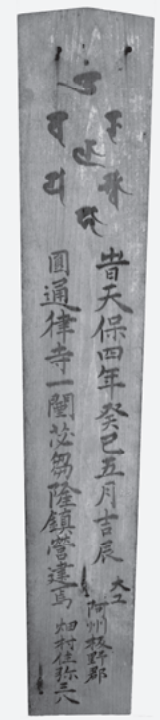 旹天保四年癸巳五月吉辰
大工
阿州板野郡
畑村住弥三八
圓通律寺一閣苾蒭隆鎮營建焉